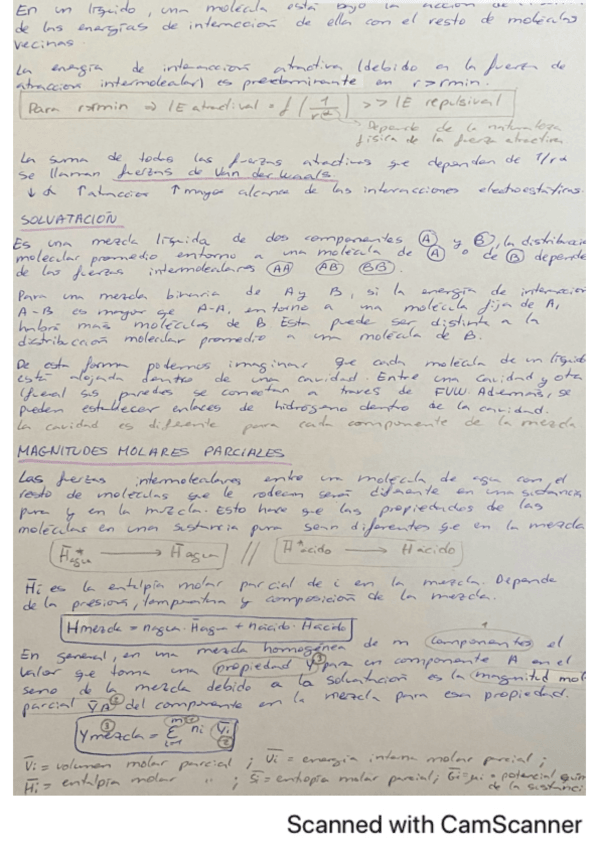 En un líquido, una molécula está bajo la acción de
de las energías de interacción de ella con el resto de moléculas
vecinas.
La energía de interacción atractiva (debido a la fuerza de
atracción intermolecular) es predominante en r>rmin.
Para r>rmin ⇒ |E atractiva| = f (1/r^α) >> |E repulsiva|
Depende de la naturaleza
física de la fuerza atractiva
La suma de todas las fuerzas atractivas que dependen de 1/rα
se llaman fuerzas de Van der Waals.
↓ α ↑ atracción ↑ mayor alcance de las interacciones electrostáticas.
SOLVATACIÓN
Es una mezcla líquida de dos componentes (A) y (B), la distribución
molecular promedio entorno a una molécula de (A) o de (B) depende
de las fuerzas intermoleculares (AA) (AB) (BB).
Para una mezcla binaria de A y B, si la energía de interacción
A-B es mayor qe A-A, entorno a una molécula fija de A,
habrá más moléculas de B. Esta puede ser distinta a la
distribución molecular promedio a una molécula de B.
De esta forma podemos imaginar que cada molécula de un líquido
está alojada dentro de una cavidad. Entre una cavidad y otra
sus paredes se conectan a través de FVW. Además, se
pueden establecer enlaces de hidrógeno dentro de la cavidad.
La cavidad es diferente para cada componente de la mezcla
MAGNITUDES MOLARES PARCIALES
Las fuerzas intermoleculares entre una molécula de agua con el
resto de moléculas que le rodean serán diferente en una sustancia
pura y en la mezcla. Esto hace que las propiedades de las
moléculas en una sustancia pura sean diferentes qe en la mezcla
H̄*agua → H̄agua // H̄*ácido → H̄ácido
H̄i es la entalpía molar parcial de i en la mezcla. Depende
de la presión, temperatura y composición de la mezcla.
Hmezcla = nagua · H̄agua + nácido · H̄ácido
En general, en una mezcla homogénea de m componentes el
valor que toma una propiedad Y para un componente A en el
seno de la mezcla debido a la solvatación es la magnitud mol
parcial ȲA del componente en la mezcla para esa propiedad.
Ymezcla = Σ ni Ȳi
V̄i = volumen molar parcial ; Ūi = energía interna molar parcial ;
H̄i = entalpía molar " ; S̄i = entropía molar parcial ; Ḡi = μi = potencial quím
de la sustanci
Scanned with CamScanner